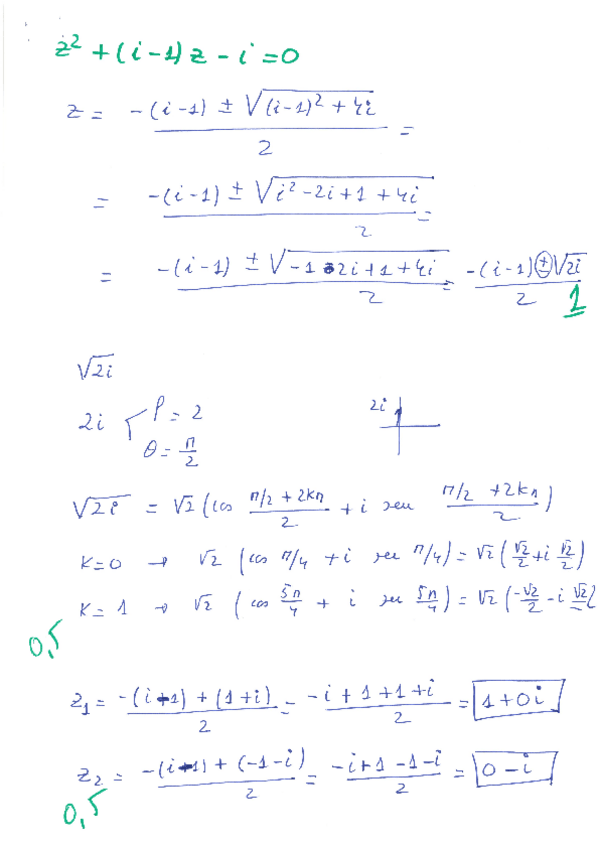 z² + (i-1) z - i = 0
z = (-(i-1) ± √((i-1)² + 4i))/2 =
= (-(i-1) ± √(i² - 2i + 1 + 4i))/2 =
= (-(i-1) ± √(-1 - 2i + 1 + 4i))/2 = (-(i-1) ± √(2i))/2 1
√(2i)
2i
2i ρ = 2
θ = π/2
√(2i) = √2 (cos (π/2 + 2kπ)/2 + i sen (π/2 + 2kπ)/2)
K=0 → √2 (cos π/4 + i sen π/4) = √2 (√2/2 + i √2/2)
K=1 → √2 (cos 5π/4 + i sen 5π/4) = √2 (-√2/2 - i √2/2
0,5
z₁ = (-(i-1) + (1+i))/2 = (-i + 1 + 1 + i)/2 = 1+0i
z₂ = (-(i-1) + (-1-i))/2 = (-i+1 -1-i)/2 = 0-i
0,5